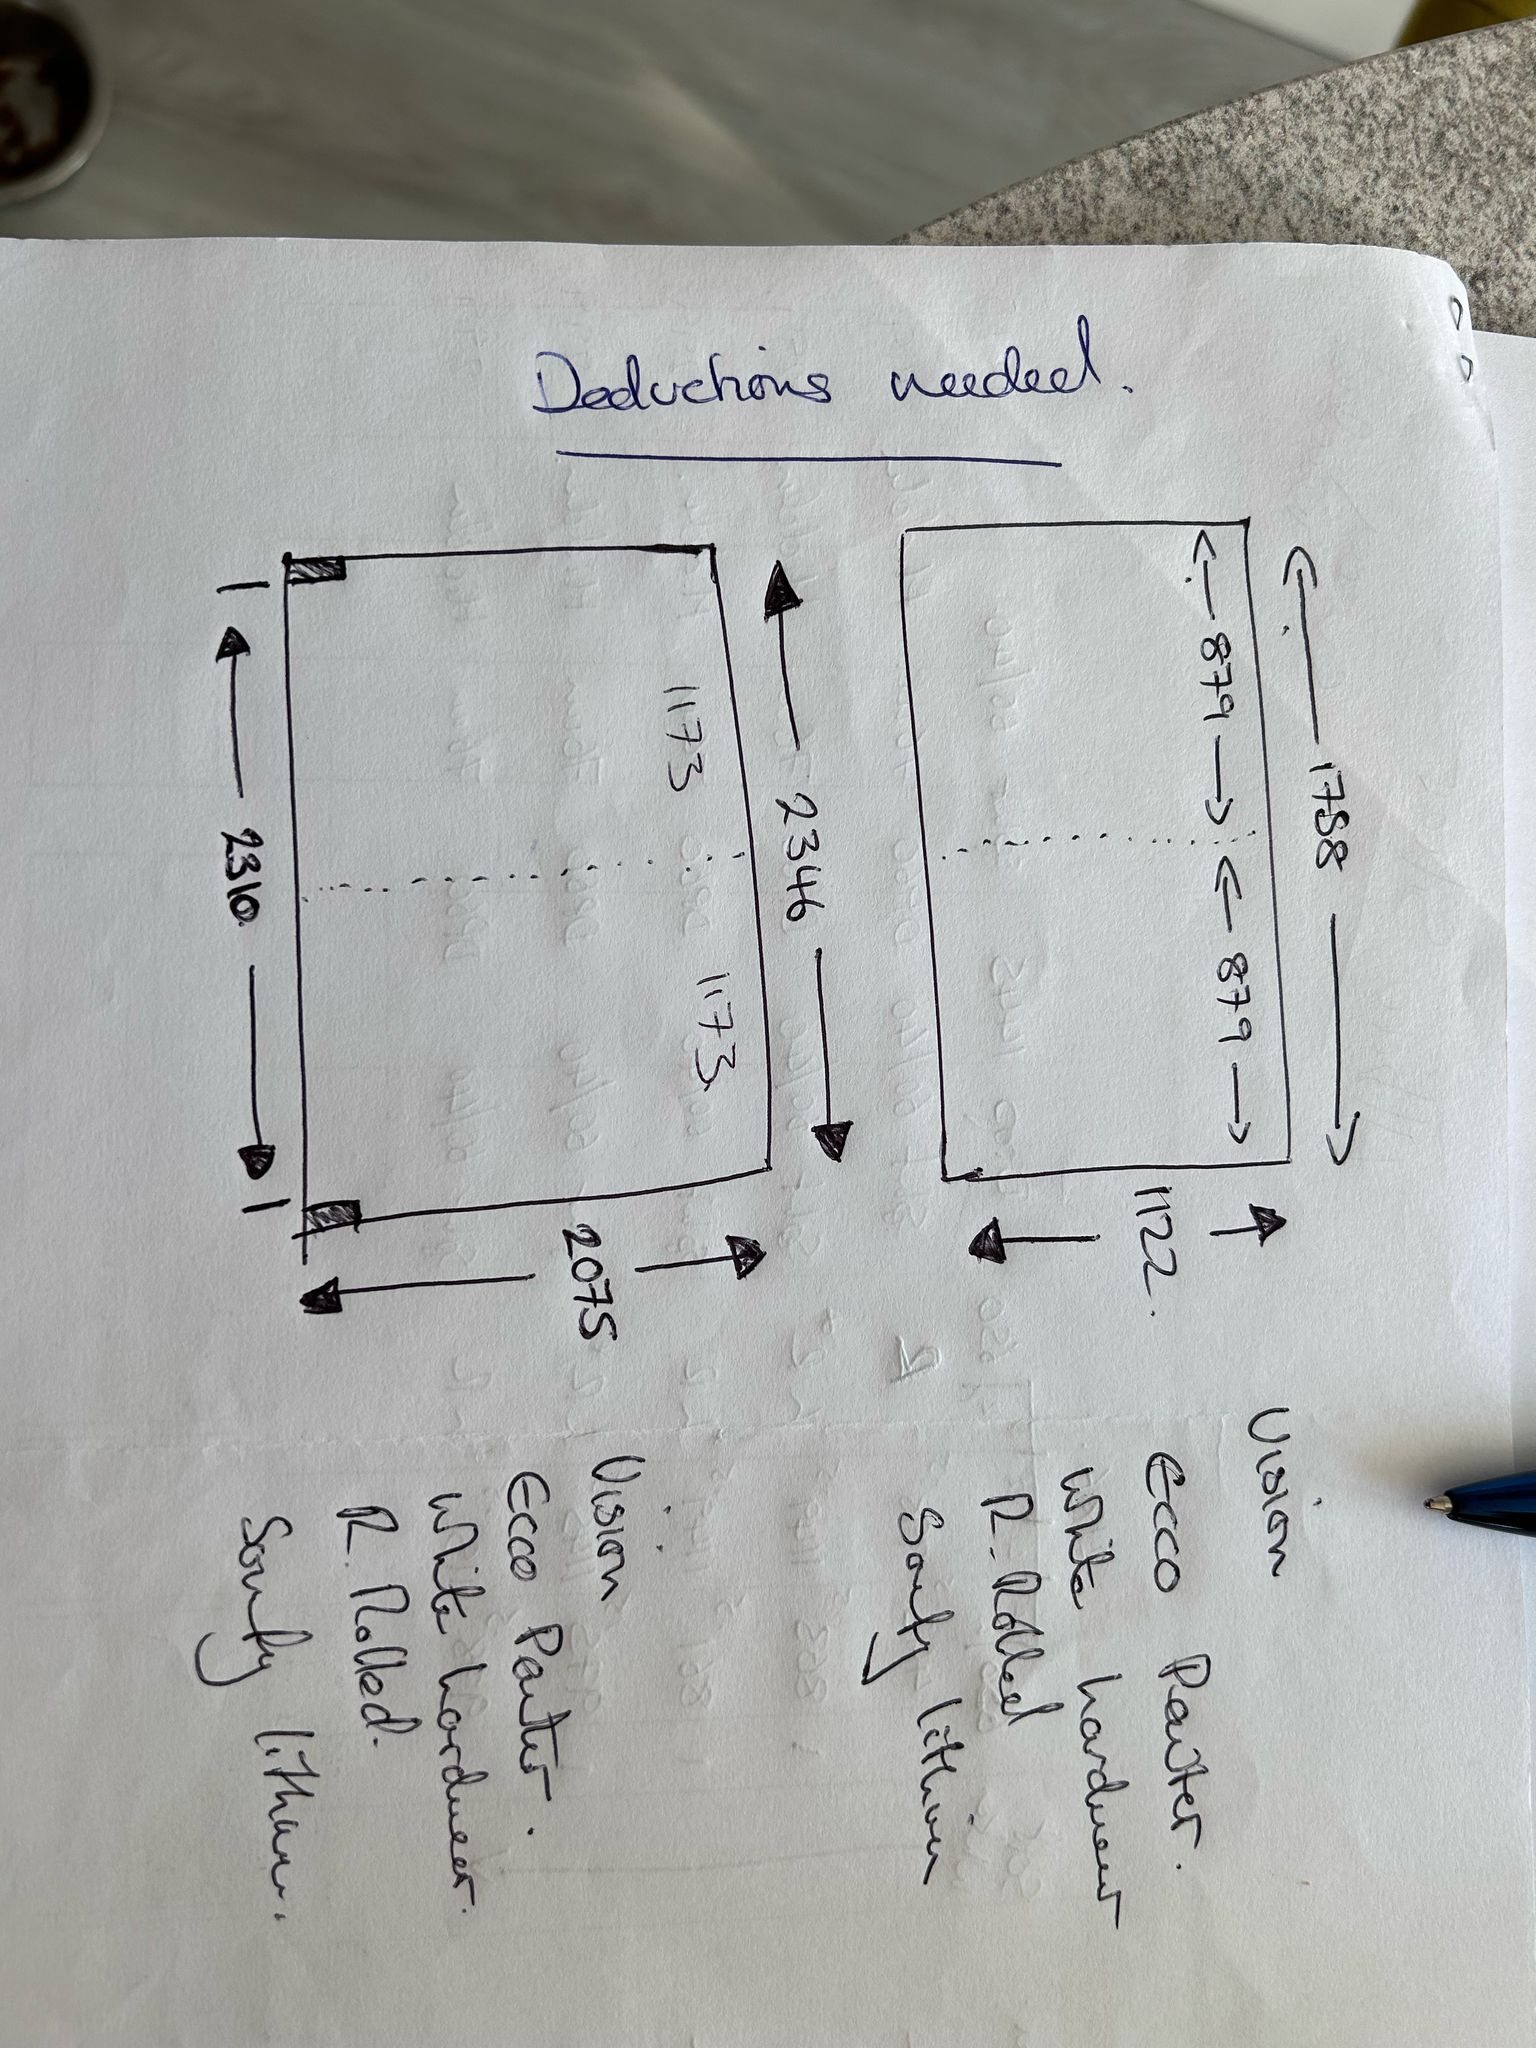 Deductions needed.
1788
879 879
1122.
Vision
Ecco Panter.
White hardwear
R. Rolled
Somfy lithium
2346
1173 1173
2075
2310
Vision
Ecco Panter.
White hardwear.
R. Rolled.
Somfy lithium.